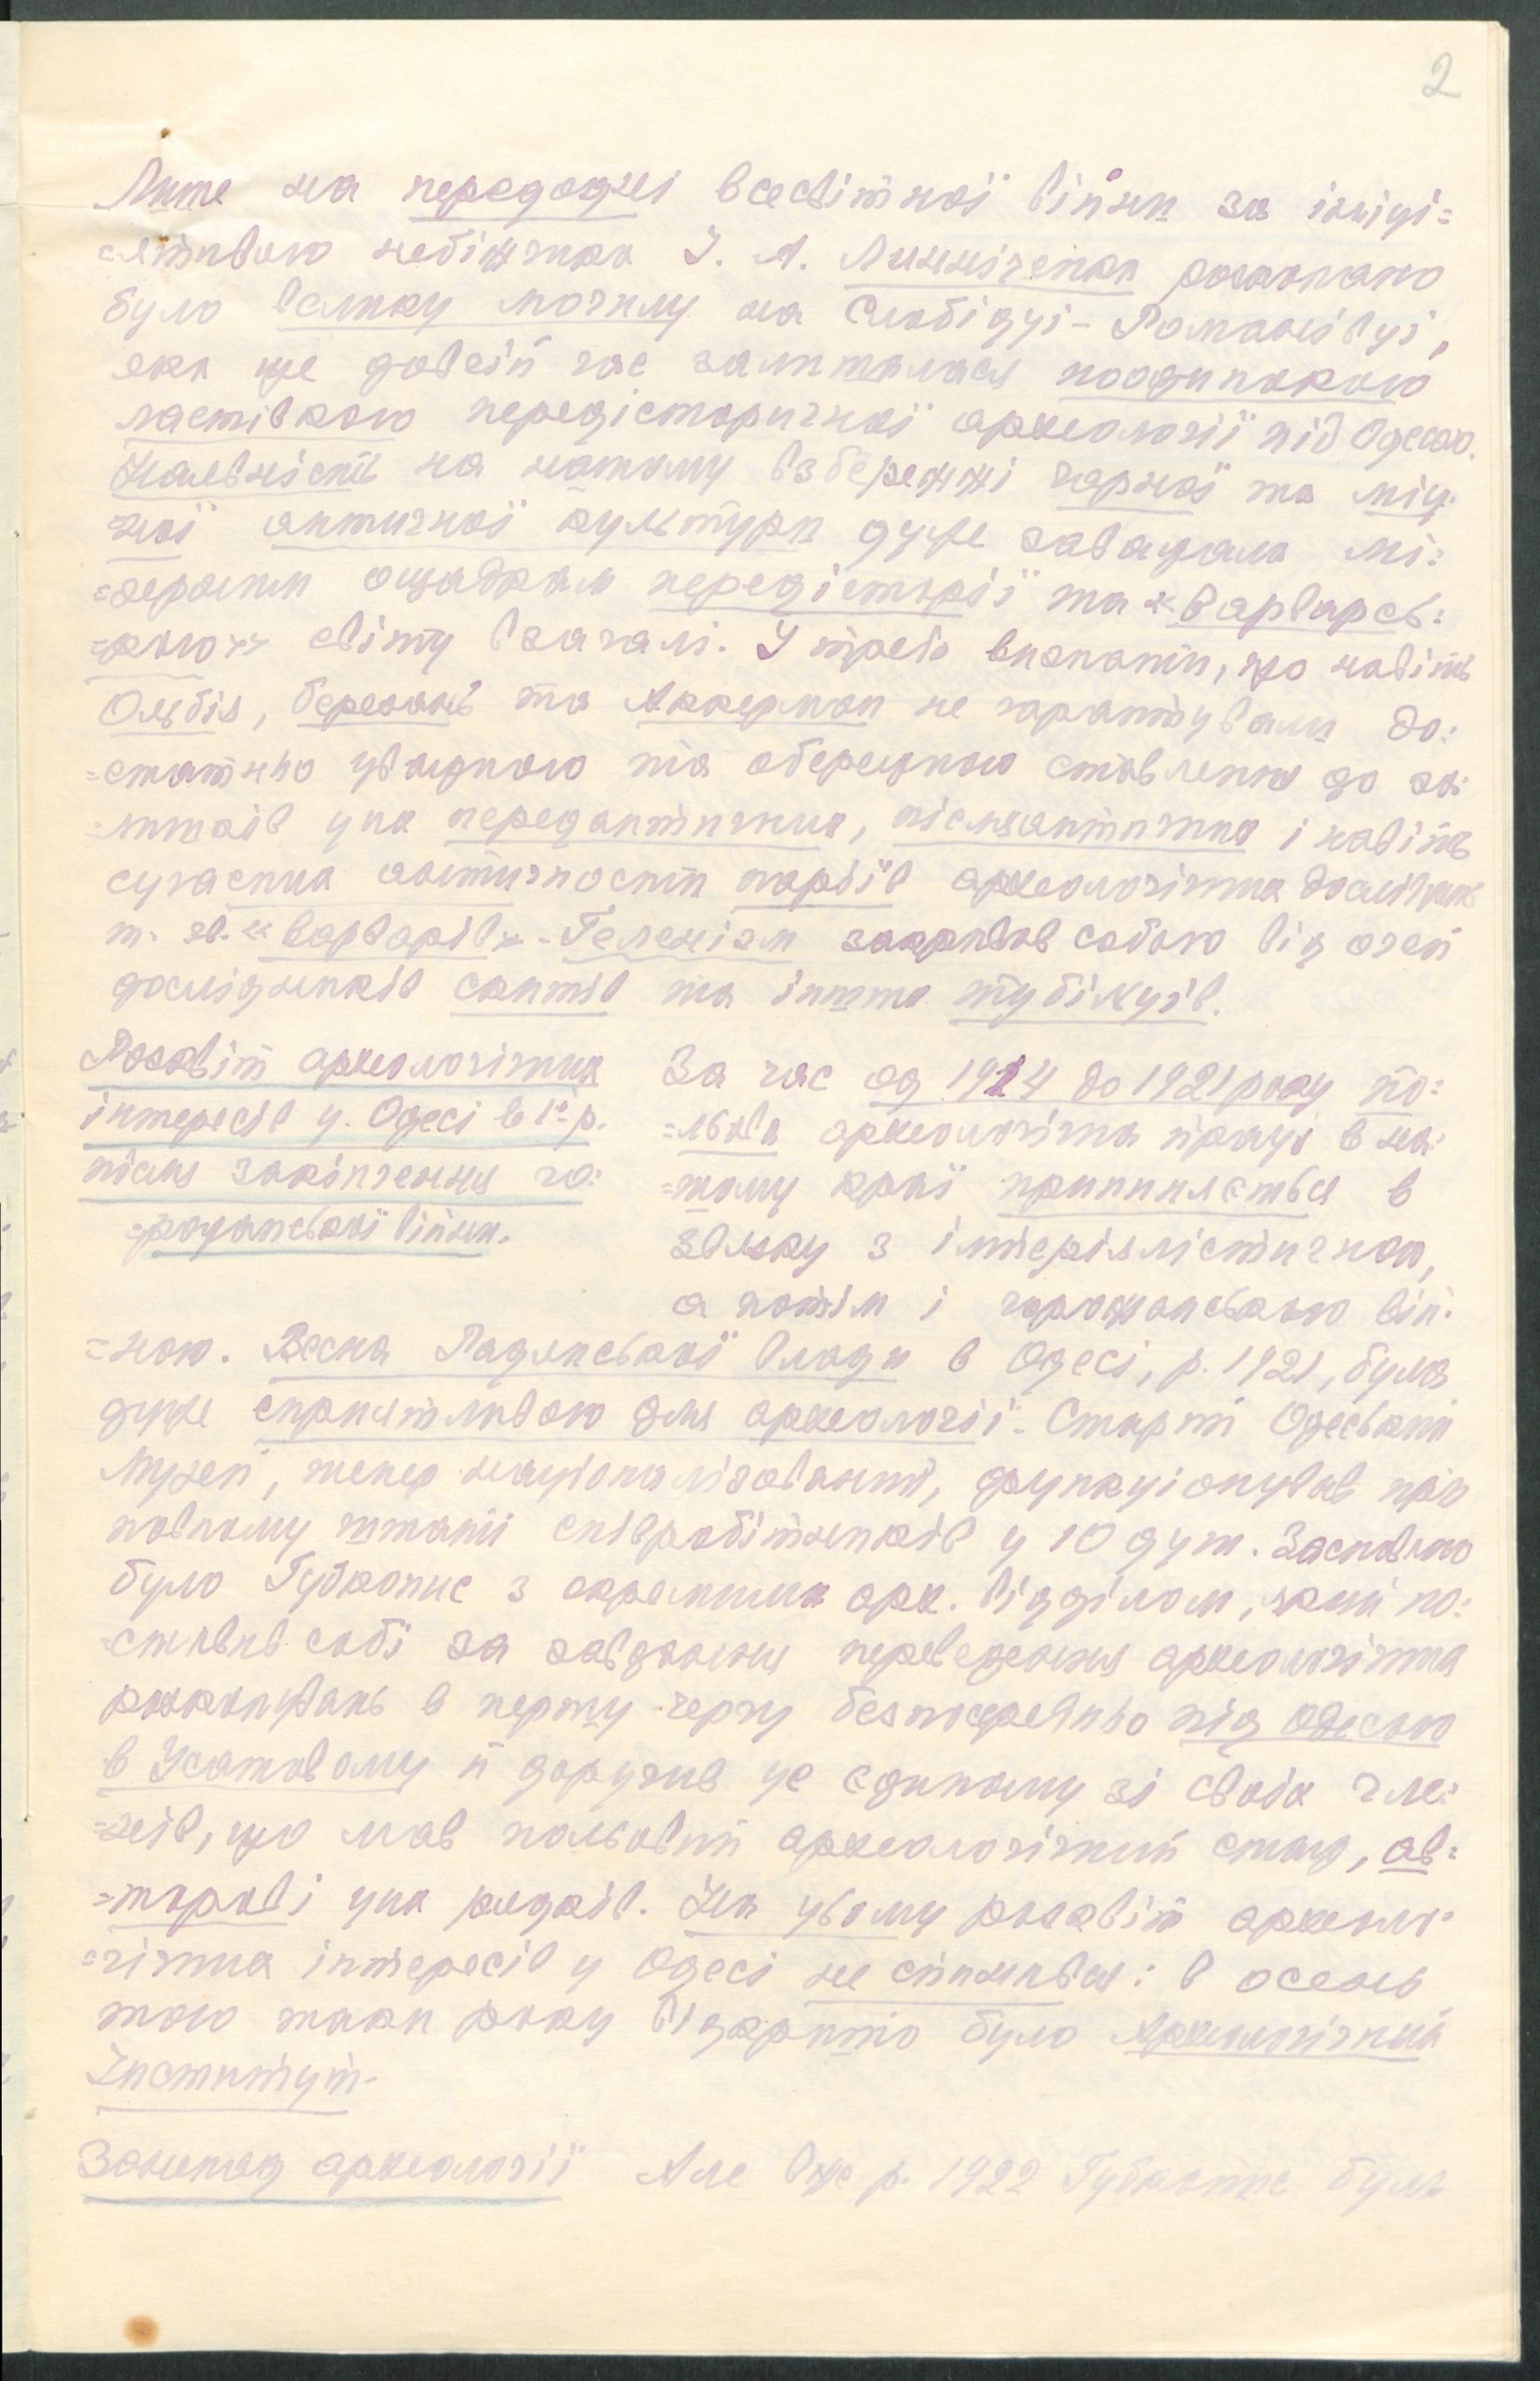 2
Лише на передодні всесвітної війни за ініці=
=ятивою небіжчика І. А. Линниченка розкопано
було велику могилу на Слобідці-Романівці,
яка ще довсій час залишалася поодинокою
ластівкою передісторичної археології під Одесою.
Наявність на нашому взбережжі гарної та міц=
=ної античної культури дуже заважала мі=
=зерним ощадкам передісторії та «варварсь=
=кого» світу взагалі. І треба визнати, що навіть
Ольбія, Березань та Аккерман не гарантували до=
=статньо уважного та обережного ставлення до за=
=лишків цих передантичних, післяантичних і навіть
сучасних античности паріїв археологічних досліджень
т. зв. «варварів». Геленізм закривав собою від очей
дослідників скитів та інших тубільців.
Розквіт археологічних
інтересів у Одесі в 1е р.
після закінчення го=
=рожанської війни.
За час од 1914 до 1921 року по=
=льова археологічна праця в на=
=шому краї припиняється в
звязку з імперіялістичною,
а потім і горожанською вій=
=ною. Весна Радянської влади в Одесі, р. 1921, була
дуже сприятливою для археології. Старий Одеський
Музей, тепер націоналізований, функціонував при
повному штаті співробітників у 10 душ. Засновано
було Губкопис з окремим арх. відділом, який по=
=ставив собі за завдання переведення археологічних
розкопувань в першу чергу безпосередньо під Одесою
в Усатовому й доручив це єдиному зі своїх чле=
=нів, що мав польовий археологічний стаж, ав=
=торові цих рядків. На цьому розквіт археоло=
=гічних інтересів у Одесі не спинився: в осень
того таки року відкрито було Археологічний
Інститут.
Занепад археології
Але вже р. 1922 було